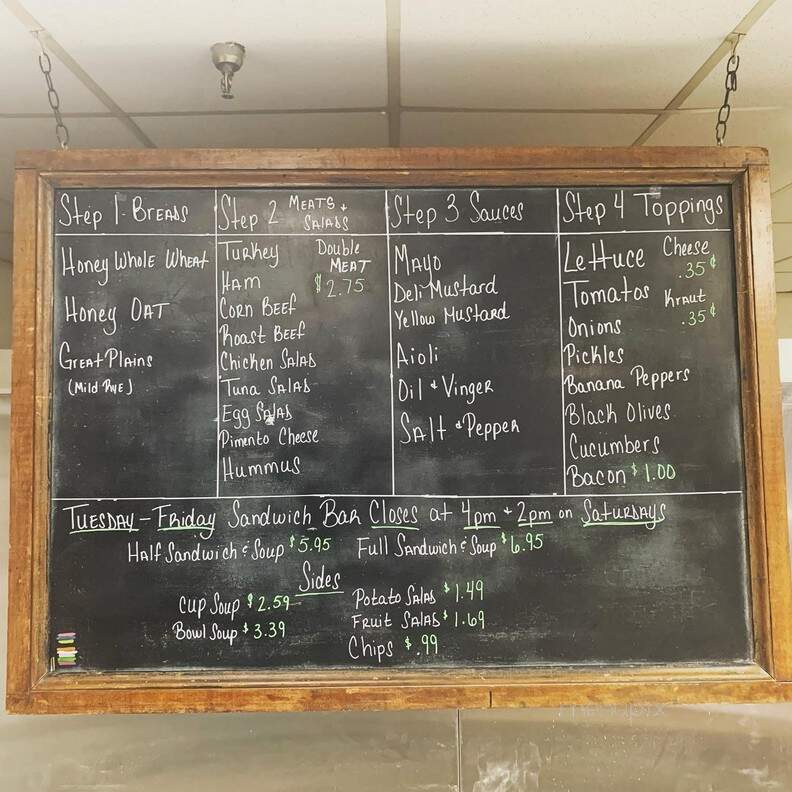 Step 1. Breads
Honey Whole Wheat
Honey Oat
Great Plains
(Mild Rye)
Step 2 Meats + Salads
Turkey
Ham
Corn Beef
Roast Beef
Chicken Salad
Tuna Salad
Egg Salad
Pimento Cheese
Hummus
Double
Meat
$2.75
Step 3 Sauces
Mayo
Deli Mustard
Yellow Mustard
Aioli
Oil + Vinger
Salt + Pepper
Step 4 Toppings
Lettuce
Tomatos
Onions
Pickles
Banana Peppers
Black Olives
Cucumbers
Bacon $1.00
Cheese
.35¢
Kraut
.35¢
Tuesday - Friday Sandwich Bar Closes at 4pm + 2pm on Saturdays
Half Sandwich & Soup $5.95 Full Sandwich & Soup $6.95
Sides
Cup Soup $2.59
Bowl Soup $3.39
Potato Salad $1.49
Fruit Salad $1.69
Chips $.99